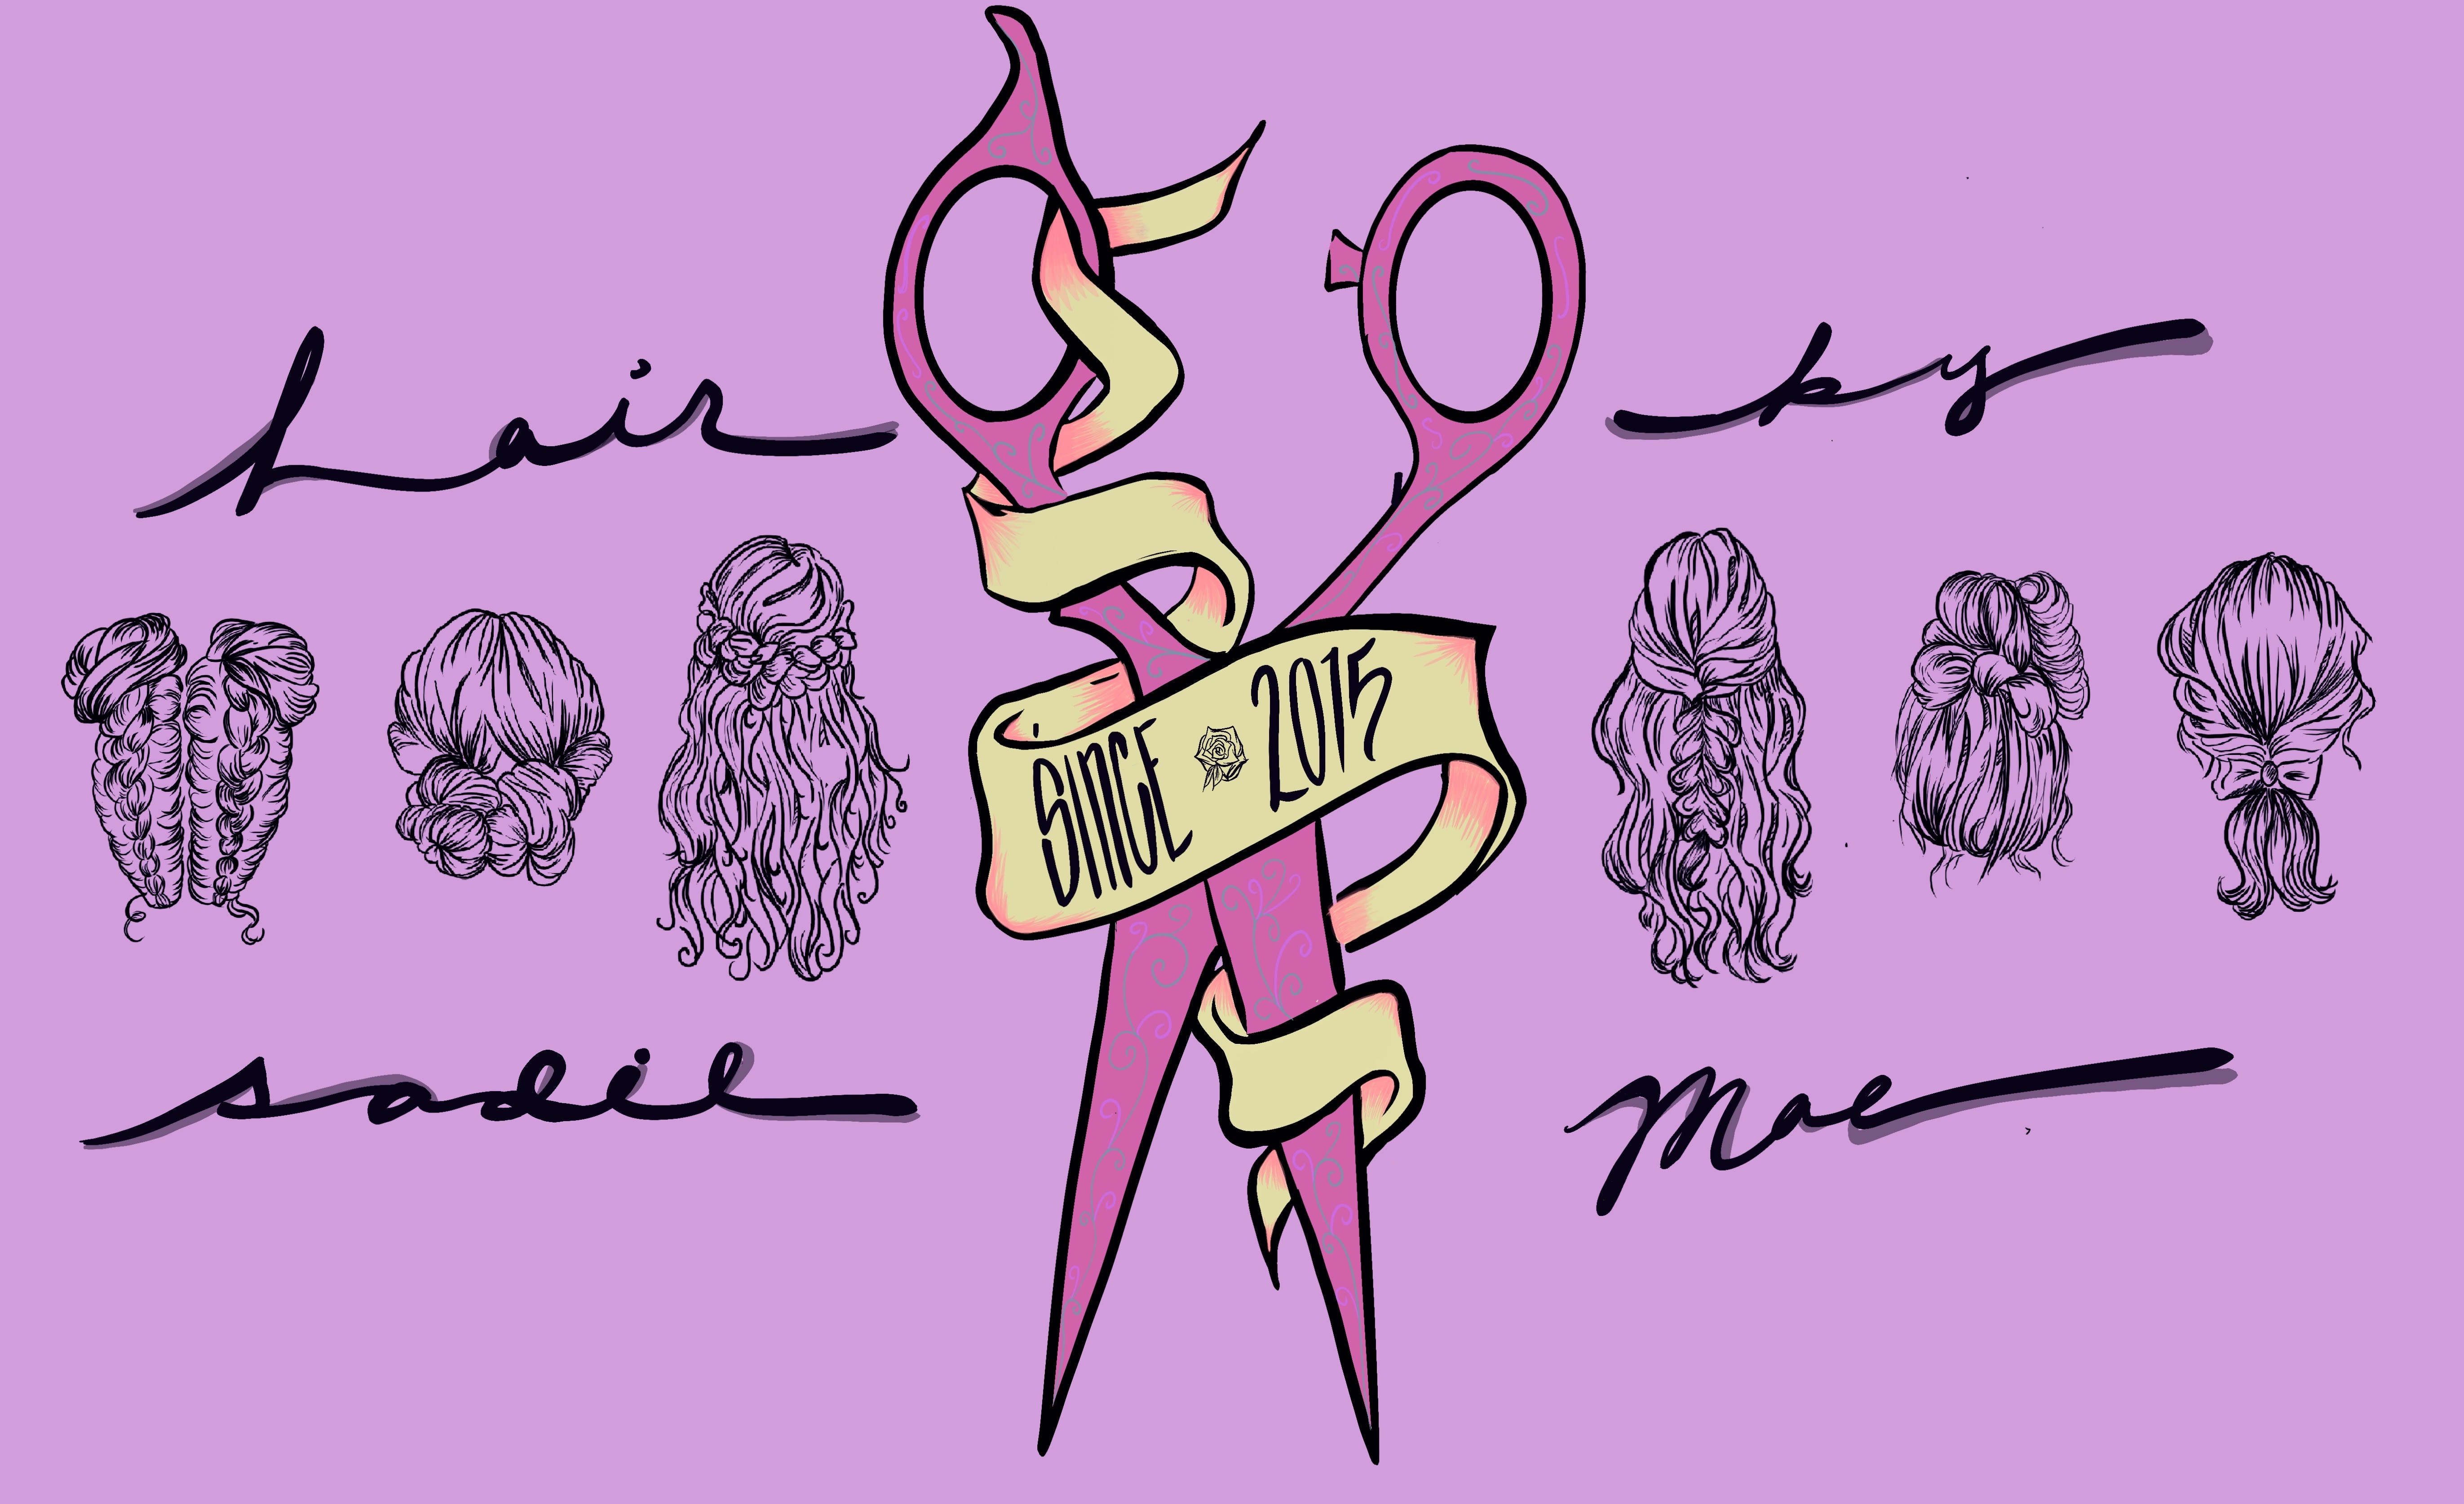 hair by
SINCE 2015
sadie Mae